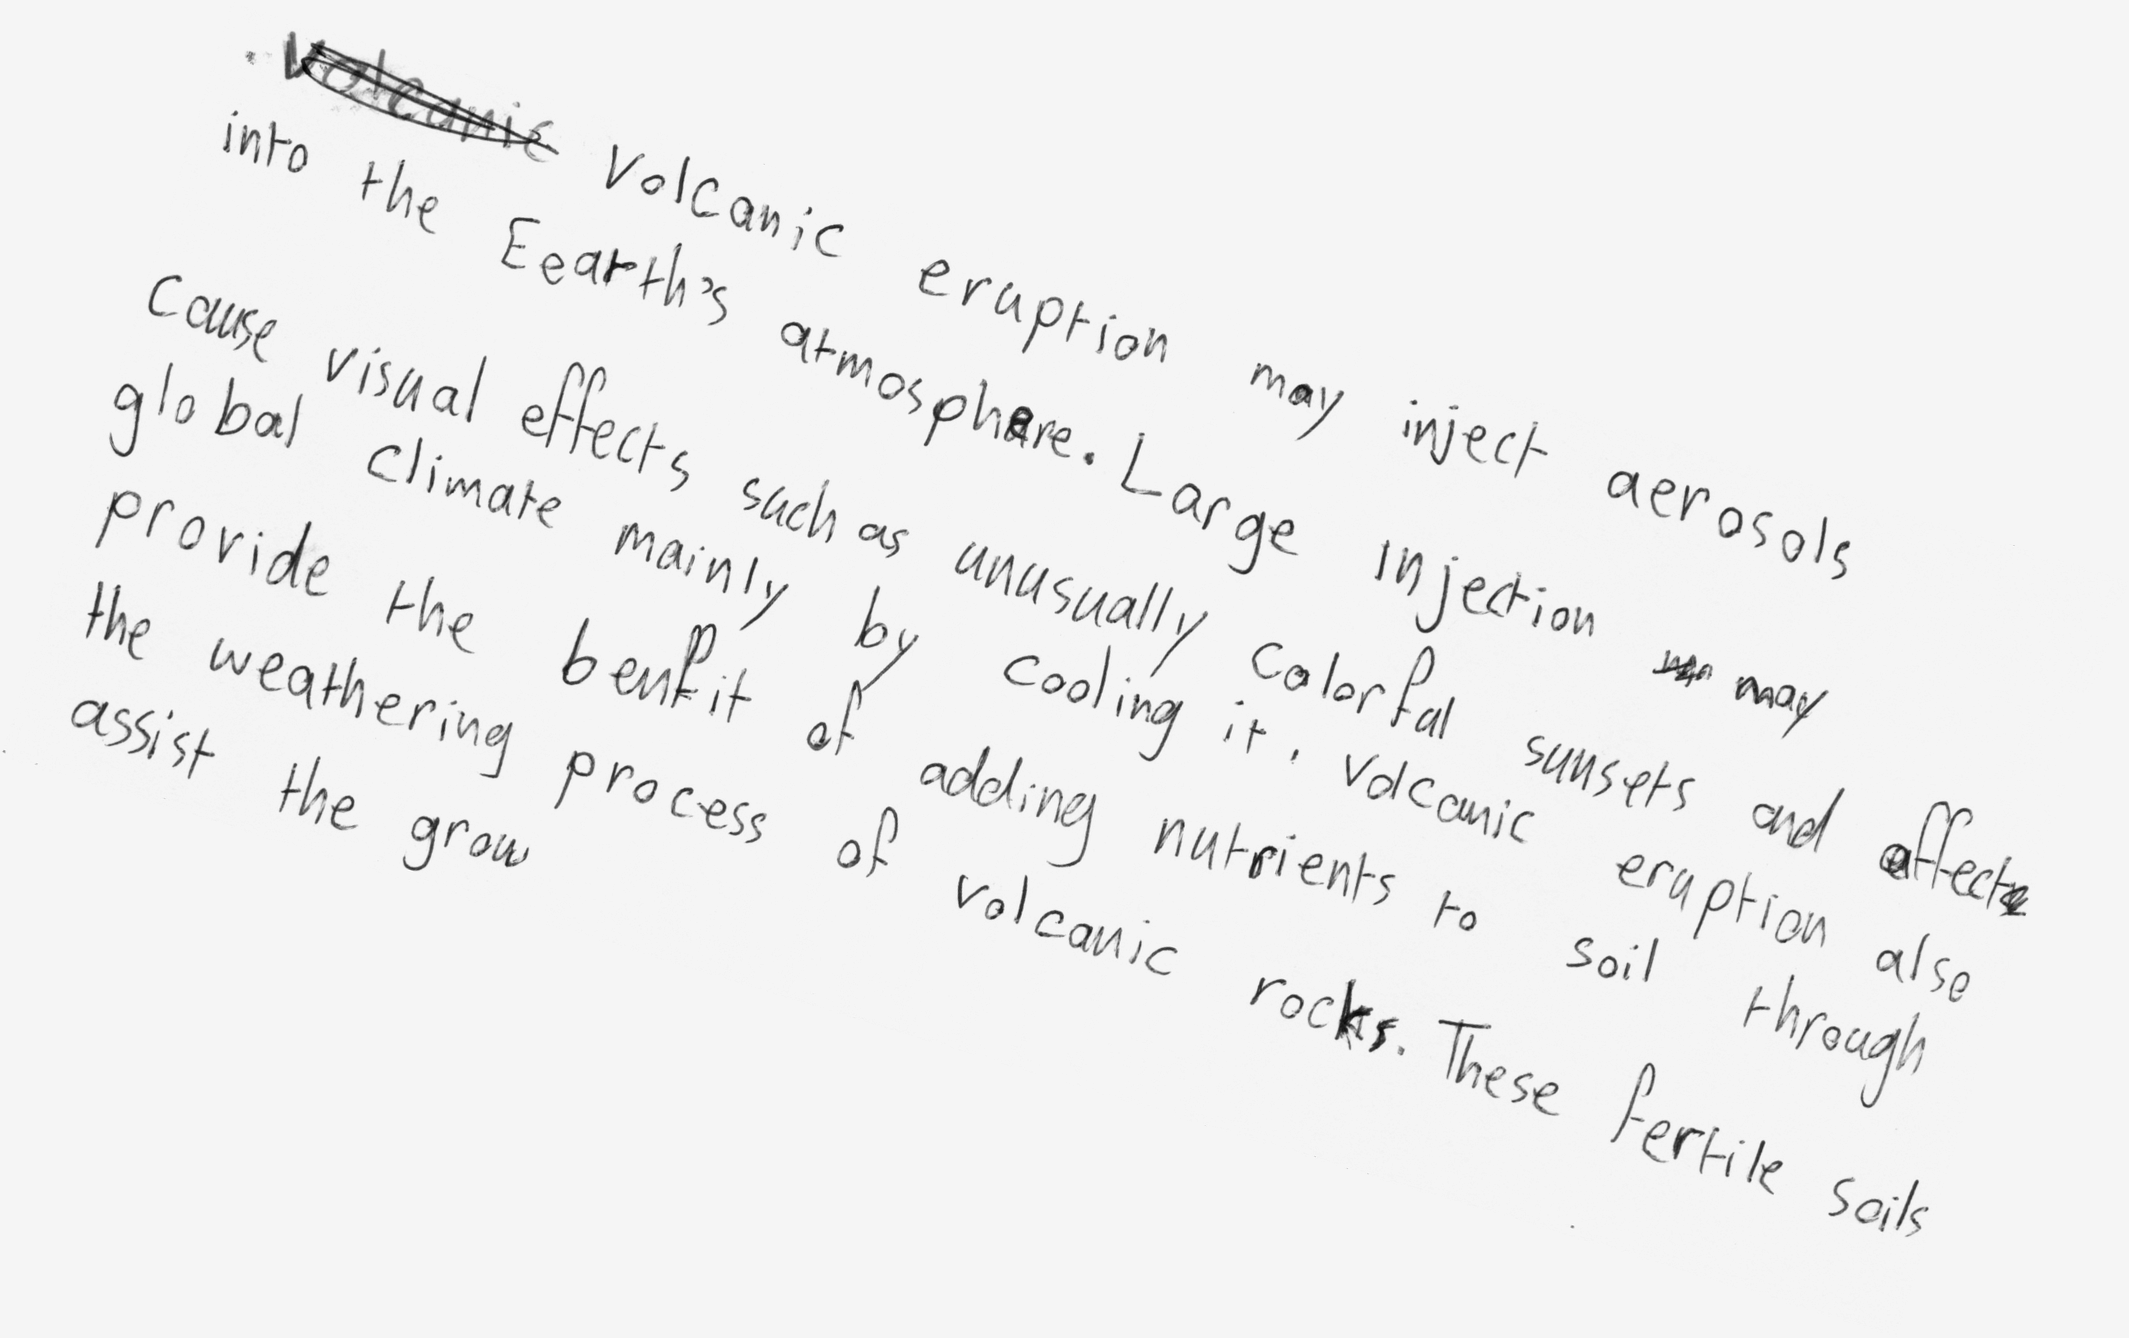 Volcanic eruption may inject aerosols
into the Eearth's atmosphere. Large Injection may
cause visual effects such as unusually colorful sunsets and affect
global climate mainly by cooling it. Volcanic eruption also
provide the benfit of adding nutrients to soil through
the weathering process of volcanic rocks. These fertile soils
assist the grow